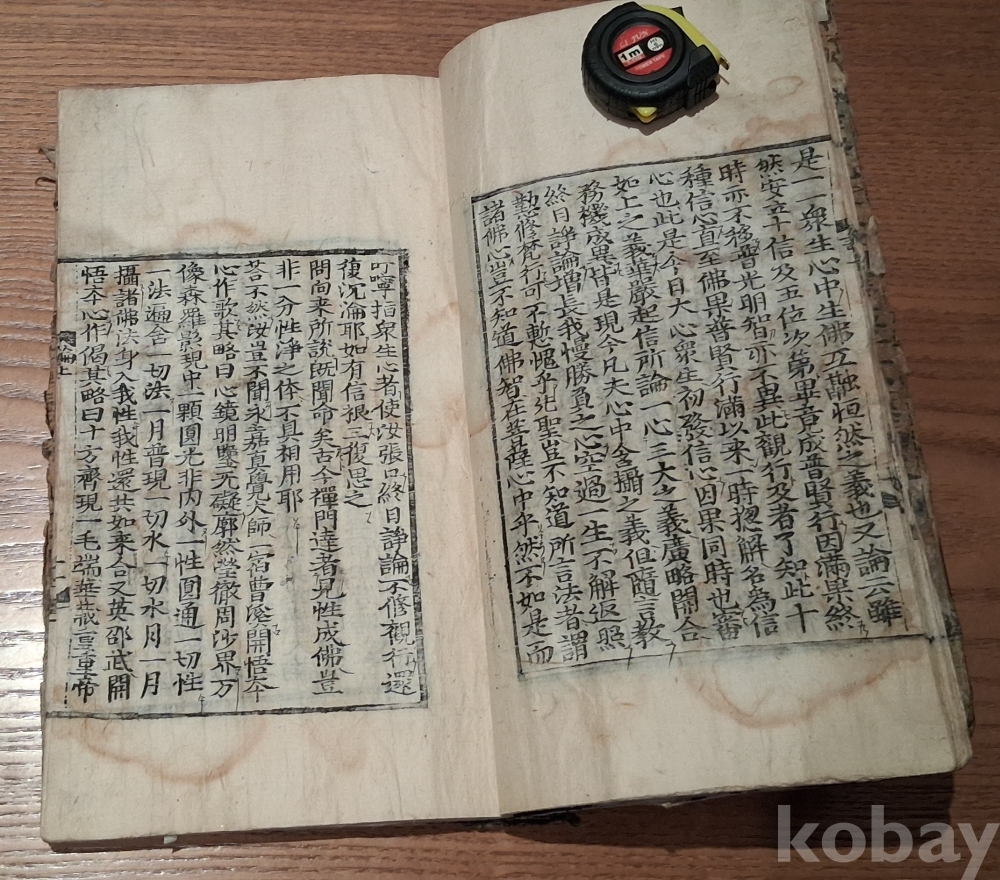 是一一衆生心中生佛互融恒然之義也又論云雖
然安立十信及五位次第畢竟成普賢行因滿果終
時亦不移普光明智亦不異此觀行及者了知此十
種信心直至佛果普賢行滿以來一時揔解名為信
心也此是今日大心衆生初發信心因果同時也審
如上之義華嚴起信所論一心三大之義廣略開合
務機成異皆是現今凡夫心中含攝之義但隨言教
終日諍論增長我慢勝負之心空過一生不解返照
懃修梵行可不慙愧乎先聖豈不知道所言法者謂
諸佛心豈不知道佛智在菩薩心中乎然不如是而
叮嚀指衆生心者使汝張口終日諍論不修觀行還
復沉淪耶如有信根三復思之
問向來所說旣聞命矣古今禪門達者見性成佛豈
非一分性淨之體不具相用耶
荅不然汝豈不聞永嘉真覺大師一宿曹溪開悟本
心作歌其略曰心鏡明鑒无礙廓然瑩徹周沙界万
像森羅影現中一顆圓光非內外一性圓通一切性
一法遍含一切法一月普現一切水一切水月一月
攝諸佛法身入我性我性還共如来合又英邵武開
悟本心作偈其略曰十方齊現一毛端華藏重重帝
論上
1m
kobay